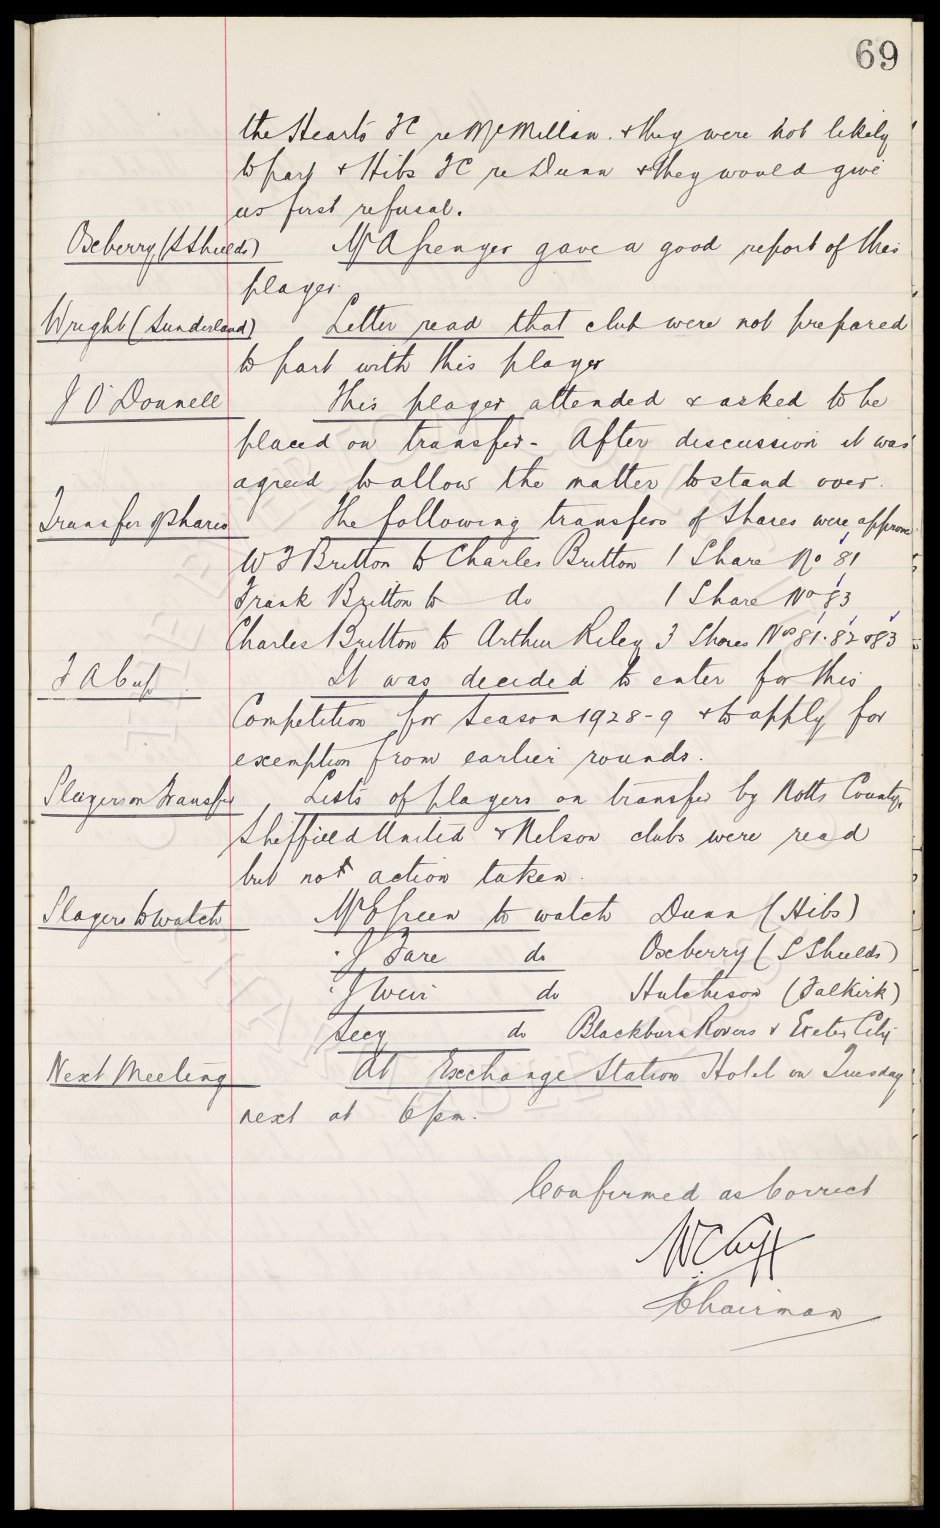 69
the Hearts FC re McMillan. & they were not likely
to part & Hibs FC re Dunn & they would give
us first refusal.
Oxberry (S Shields) Mr A Spenger gave a good report of this
player.
Wright (Sunderland) Letter read that club were not prepared
to part with this player
J O'Donnell This player attended & asked to be
placed on transfer - After discussion it was
agreed to allow the matter to stand over.
Transfer of Shares The following transfers of Shares were approved
W F Britton to Charles Britton 1 Share No 81
Frank Britton to do 1 Share No 83
Charles Britton to Arthur Riley 3 Shares Nos 81. 82 & 83
F A Cup It was decided to enter for this
Competition for Season 1928-9 & to apply for
exemption from earlier rounds.
Players on Transfer Lists of players on transfer by Notts County,
Sheffield United & Nelson clubs were read
but not action taken.
Players to watch Mr E Green to watch Dunn (Hibs)
" J Fare do Oxberry (S Shields)
" J Weir do Hutchison (Falkirk)
Secy do Blackburn Rovers v Exeter City
Next Meeting At Exchange Station Hotel on Tuesday
next at 6pm.
Confirmed as Correct
W C Cuff
Chairman